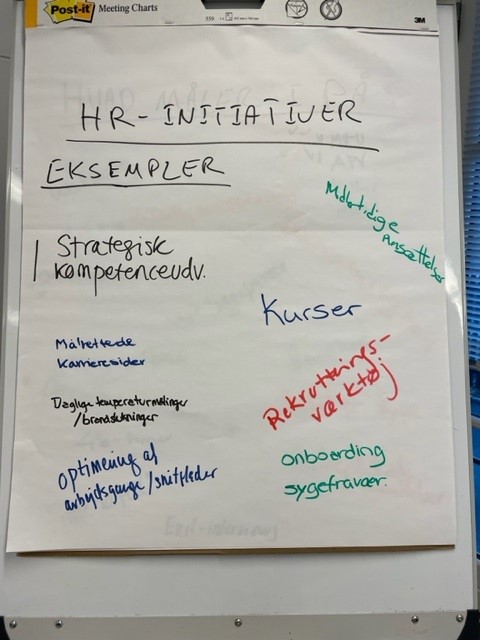 Post-it Meeting Charts
559
3M
HR-INITIATIVER
EKSEMPLER
Midlertidige
Ansættelser
Strategisk
kompetenceudv.
Kurser
Målrettede
Karrieresider
Daglige temperaturmålinger
/brandslukninger
Rekrutterings-
værktøj
Optimering af
arbejdsgange/snitflader
onboarding
sygefravær.